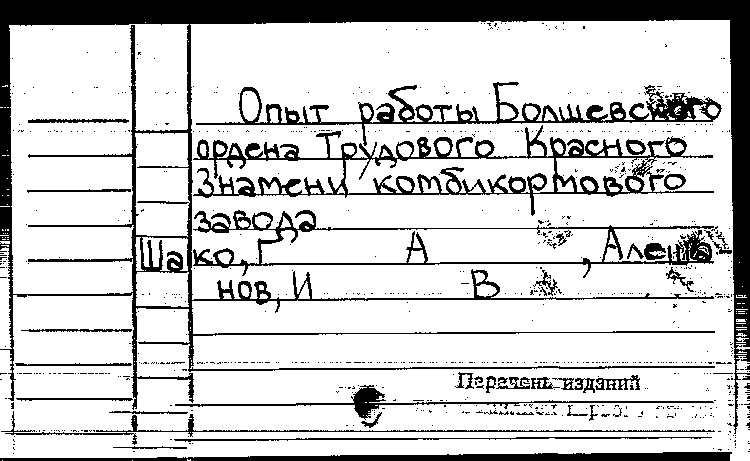 Опыт работы Болшевского
ордена Трудового Красного
Знамени комбикормового
завода.
Шако, Г А , Алеша-
нов, И В
Перечень изданий